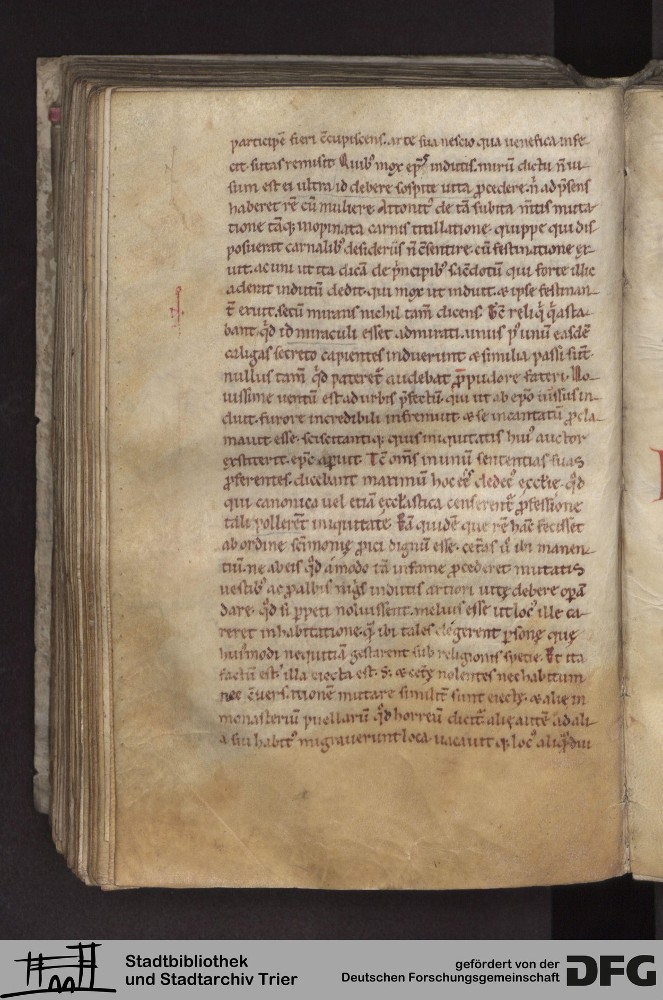 participē fieri c̄cupiscens. arte sua nescio qua venefica infe
cit. sutas remisit. Quib᷒ mox ep̄s indutis. mirū dictu n̄ ui
sum est ei ultra id debere sospite uita p̄cedere. n̄ ad p̄sens
haberet rē cū muliere. Attonit᷒ de tā subita m̄tis muta
tione tāq; inopinata carnis titillatione. quippe qui dis
posuerat carnalib᷒ desideriis n̄ c̄sentire. cū festinatione ex
uit. ac uni ut ita dicā de p̄ncipib᷒ sac̄dotū qui forte illic
aderat indutū dedit. qui mox ut induit. & ipse festinan
t̄ exuit. secū mirans nichil tam̄ dicens. Tc̄ reliq̄ q̄ asta
bant. q̄d id miraculi esset admirati. unus p᷒ unū easdē
caligas secreto capientes induerunt & similia passi sūt.
nullus tam̄ q̄d pateret̄ audebat p̄pudore fateri. No
uissime uentū est ad urbis p̄fectū. qui ut ab ep̄o iussus in
duit. furore incredibili infremuit. & se incantatū p̄cla
mauit esse. sciscitantiq; quis iniquitatis hui᷒ auctor
extiterit. ep̄c aperuit. Tc̄ om̄s in unū sententias suas
p̄ferentes. dicebant maximū hoc eē dedec᷒ ecclīe. q̄d
qui canonica uel etiā eccl̄astica censerent̄ p̄fessione
tali pollerent iniquitate. Eā quidē que rē hāc fecisset
ab ordine sc̄imonię p̄ici dignū esse. cet̄as u̅ ibi manen
tiū. ne ab eis q̄d āmodo tā infame p̄cederet mutatis
uestib᷒ ac p̄ albis niḡs indutis artiori uitę debere opam̄
dare. q̄d si p̄peti noluissent. melius esse ut loc᷒ ille ca
reret inhabitatione. q̄ ibi tales degerent p̄sonę quę
hui᷒modi nequitiā gestarent sub religionis specie. Et ita
factū est. illa eiecta est. S; & cetę nolentes nec habitum
nec c̄uersationē mutare similit̄ sunt eiectę. & alie in
monasteriū puellarū q̄d horreū dicit̄. alię autē ad ali
a sui habit᷒ migrauerunt loca. uacauit q; loc᷒ aliq̄diu
Stadtbibliothek
und Stadtarchiv Trier
gefördert von der
Deutschen Forschungsgemeinschaft
DFG